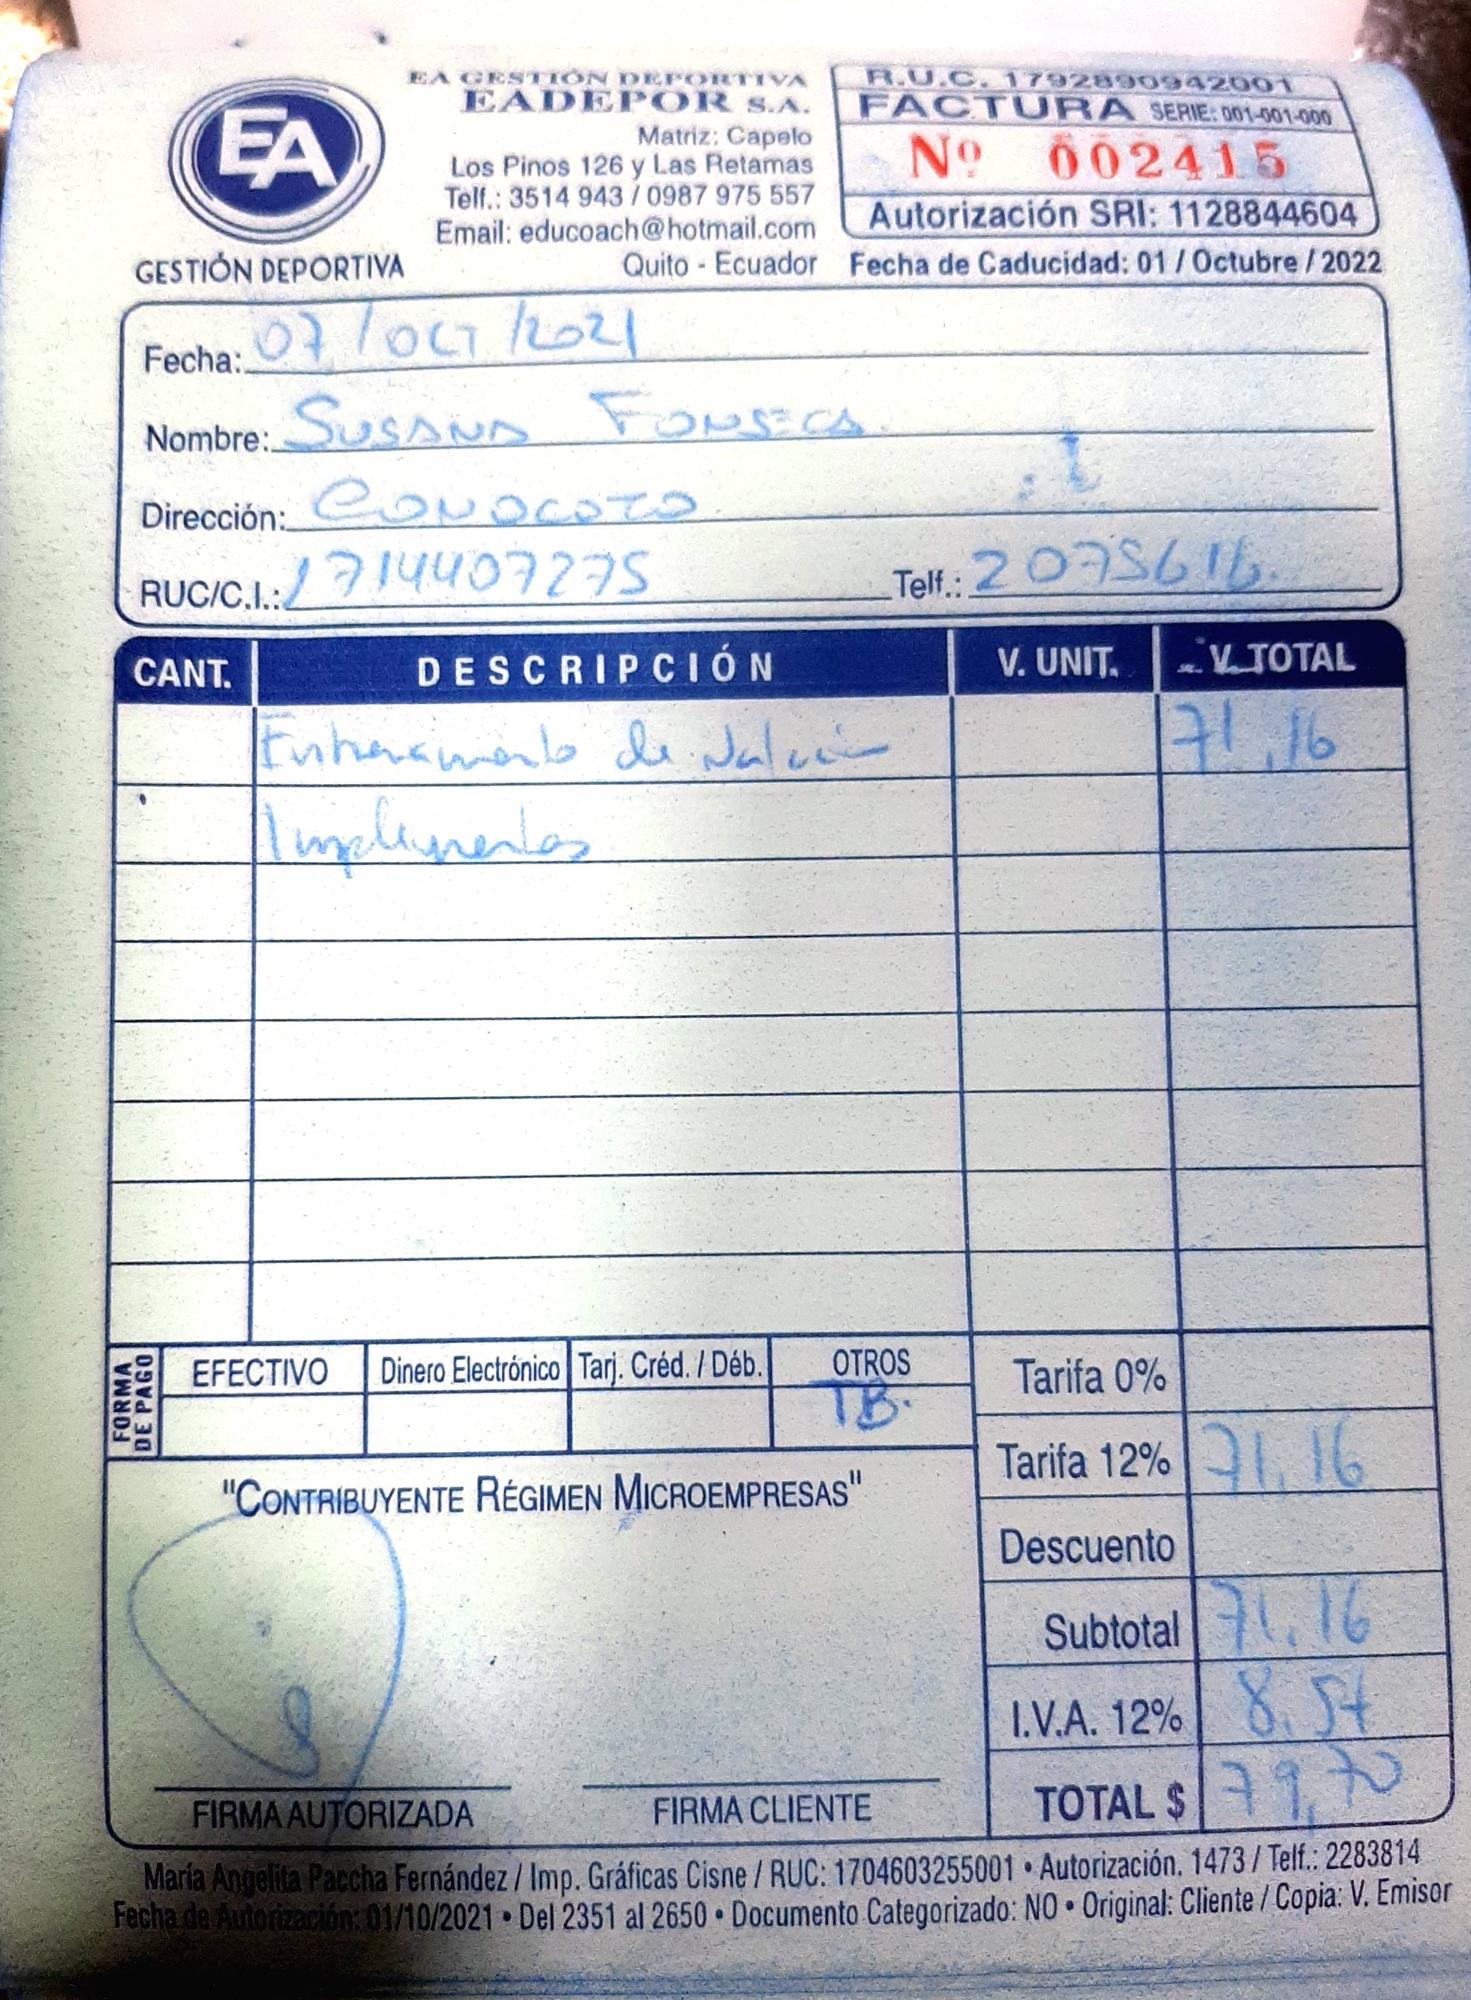 EA
GESTIÓN DEPORTIVA
EA GESTIÓN DEPORTIVA
EADEPOR S.A.
Matriz: Capelo
Los Pinos 126 y Las Retamas
Telf.: 3514 943 / 0987 975 557
Email: educoach@hotmail.com
Quito - Ecuador
R.U.C. 1792890942001
FACTURA SERIE: 001-001-000
Nº 002415
Autorización SRI: 1128844604
Fecha de Caducidad: 01 / Octubre / 2022
Fecha: 07/OCT/2021
Nombre: SUSANA FONSECA.
Dirección: CONOCOTO
RUC/C.I.: 1714407275 Telf.: 2075616.
CANT. DESCRIPCIÓN V. UNIT. V. TOTAL
Entrenamiento de Natación 71,16
Implementos
FORMA DE PAGO
EFECTIVO Dinero Electrónico Tarj. Créd. / Déb. OTROS
TB.
Tarifa 0%
Tarifa 12% 71,16
Descuento
Subtotal 71,16
I.V.A. 12% 8,54
TOTAL $ 79,70
"CONTRIBUYENTE RÉGIMEN MICROEMPRESAS"
FIRMA AUTORIZADA FIRMA CLIENTE
María Angelita Paccha Fernández / Imp. Gráficas Cisne / RUC: 1704603255001 • Autorización. 1473 / Telf.: 2283814
Fecha de Autorización: 01/10/2021 • Del 2351 al 2650 • Documento Categorizado: NO • Original: Cliente / Copia: V. Emisor